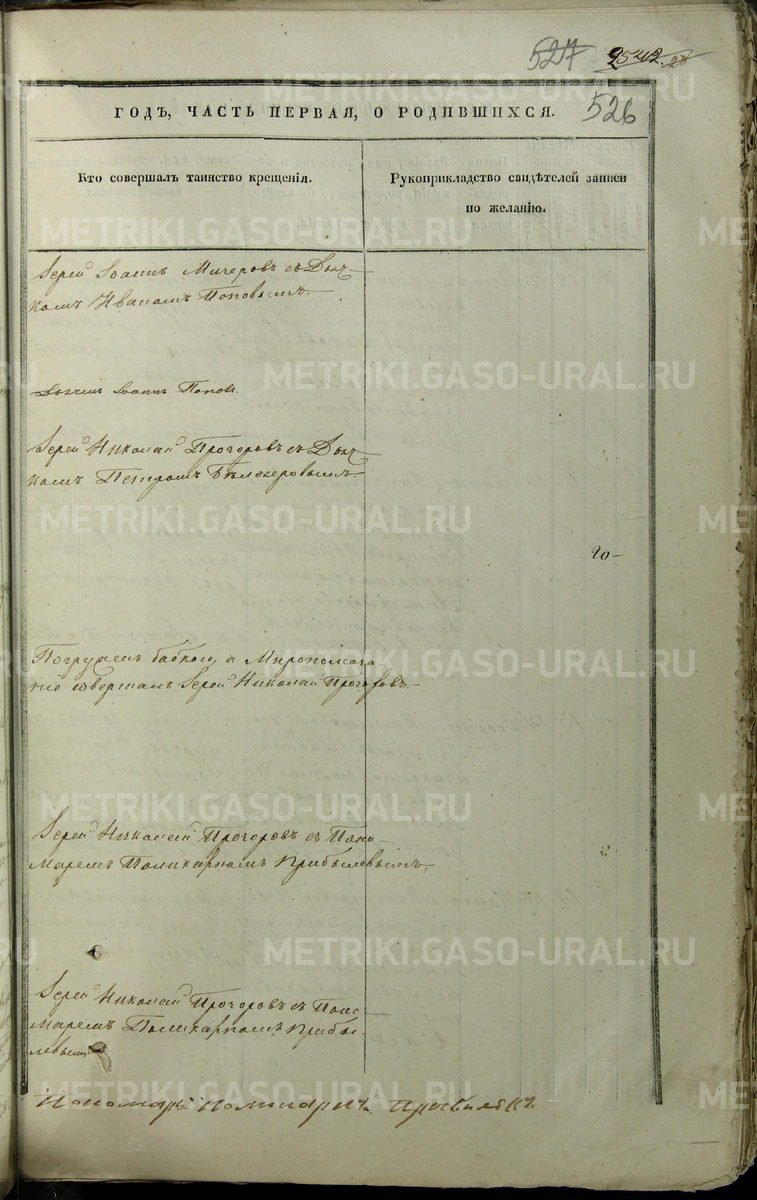 527 2542.
526
ГОДЪ, ЧАСТЬ ПЕРВАЯ, О РОДИВШИХСЯ.
Кто совершалъ таинство крещенія.
Рукоприкладство свидѣтелей записи
по желанію.
Іерей Іоаннъ Мичеровъ съ Дьяч-
комъ Иваномъ Поповымъ.
Дьячекъ Іоаннъ Поповъ.
Іерей Николай Прогоровъ съ Дьяч-
комъ Петромъ Бѣлозеровымъ.
20
Погружен бабкою, а Миропомаза
ніе совершалъ Іерей Николай Прогоровъ.
Іерей Николай Прогоровъ съ Поно-
маремъ Поликарпомъ Прибылевымъ.
Іерей Николай Прогоровъ съ Поно-
маремъ Поликарпомъ Прибы-
левымъ
Пономарь Поликарпъ
METRIKI.GASO-URAL.RU